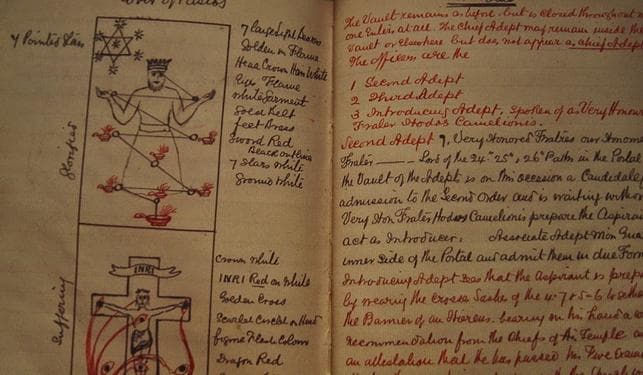 7 Pointed Stars
Glorified
7 Large Light Beacons
Golden in Flame
Head Crown Hair White
Eyes Flame
White Garment
Gold Belt
feet Brass
Sword Red
Black outlines
7 Stars White
Ground White
Suffering
INRI
Crown White
INRI Red on White
Golden Cross
Scarlet Circlet on Head
figure Flesh Colour
Dragon Red
The Vault remains as before but is closed throughout
one Enters at all. The Chief Adept may remain inside the
Vault or Elsewhere but does not appear as chief Adept
The officers are the
1 Second Adept
2 Third Adept
3 Introducing Adept, Spoken of as Very Honoured
Frater Hodos Camelionis.
Second Adept Very Honored Fratres our Honoured
Frater —— Lord of the 24th 25th & 26th Paths in the Portal
the Vault of the Adepts is on this occasion a Candidate
admission to the Second Order and is waiting without
Very Hon Frater Hodos Camelionis prepare the Aspirant
act as Introducer. Associate Adept Min Guard
inner side of the Portal and admit them in due Form
Introducing Adept Sees that the Aspirant is prepared
by wearing the Crossed Sashes of the 4=7 & 5=6
the Banner of an Hiereus. bearing in his hand a
recommendation from the Chiefs of his Temple
an attestation that he has passed his Five